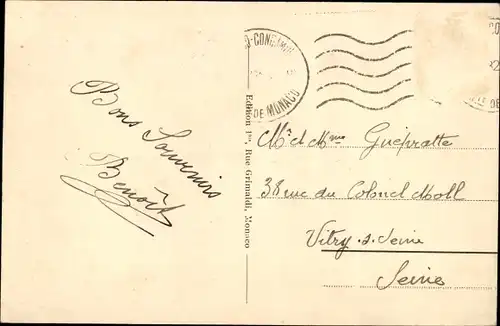 Bons Souvenirs
Benoît
Edition 1re, Rue Grimaldi, Monaco
DE MONACO
Mr et Mme Guépratte
38 rue du Colonel Moll
Vitry s. Seine
Seine